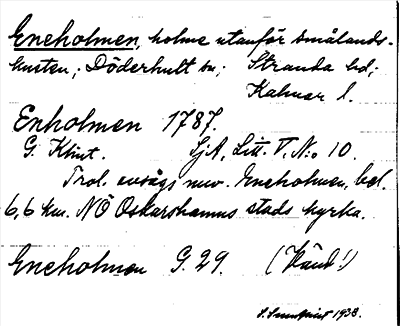 Eneholmen, holme utanför Smålands-
kusten; Döderhult sn; Stranda hd;
Kalmar l.
Enholmen 1787.
G. Klint. SjA, Litt. V, No 10.
Trol. avsågs nuv. Eneholmen, bel.
6,6 km. NÖ Oskarshamns stads kyrka.
Eneholmen G. 29. (Känd!)
1938.